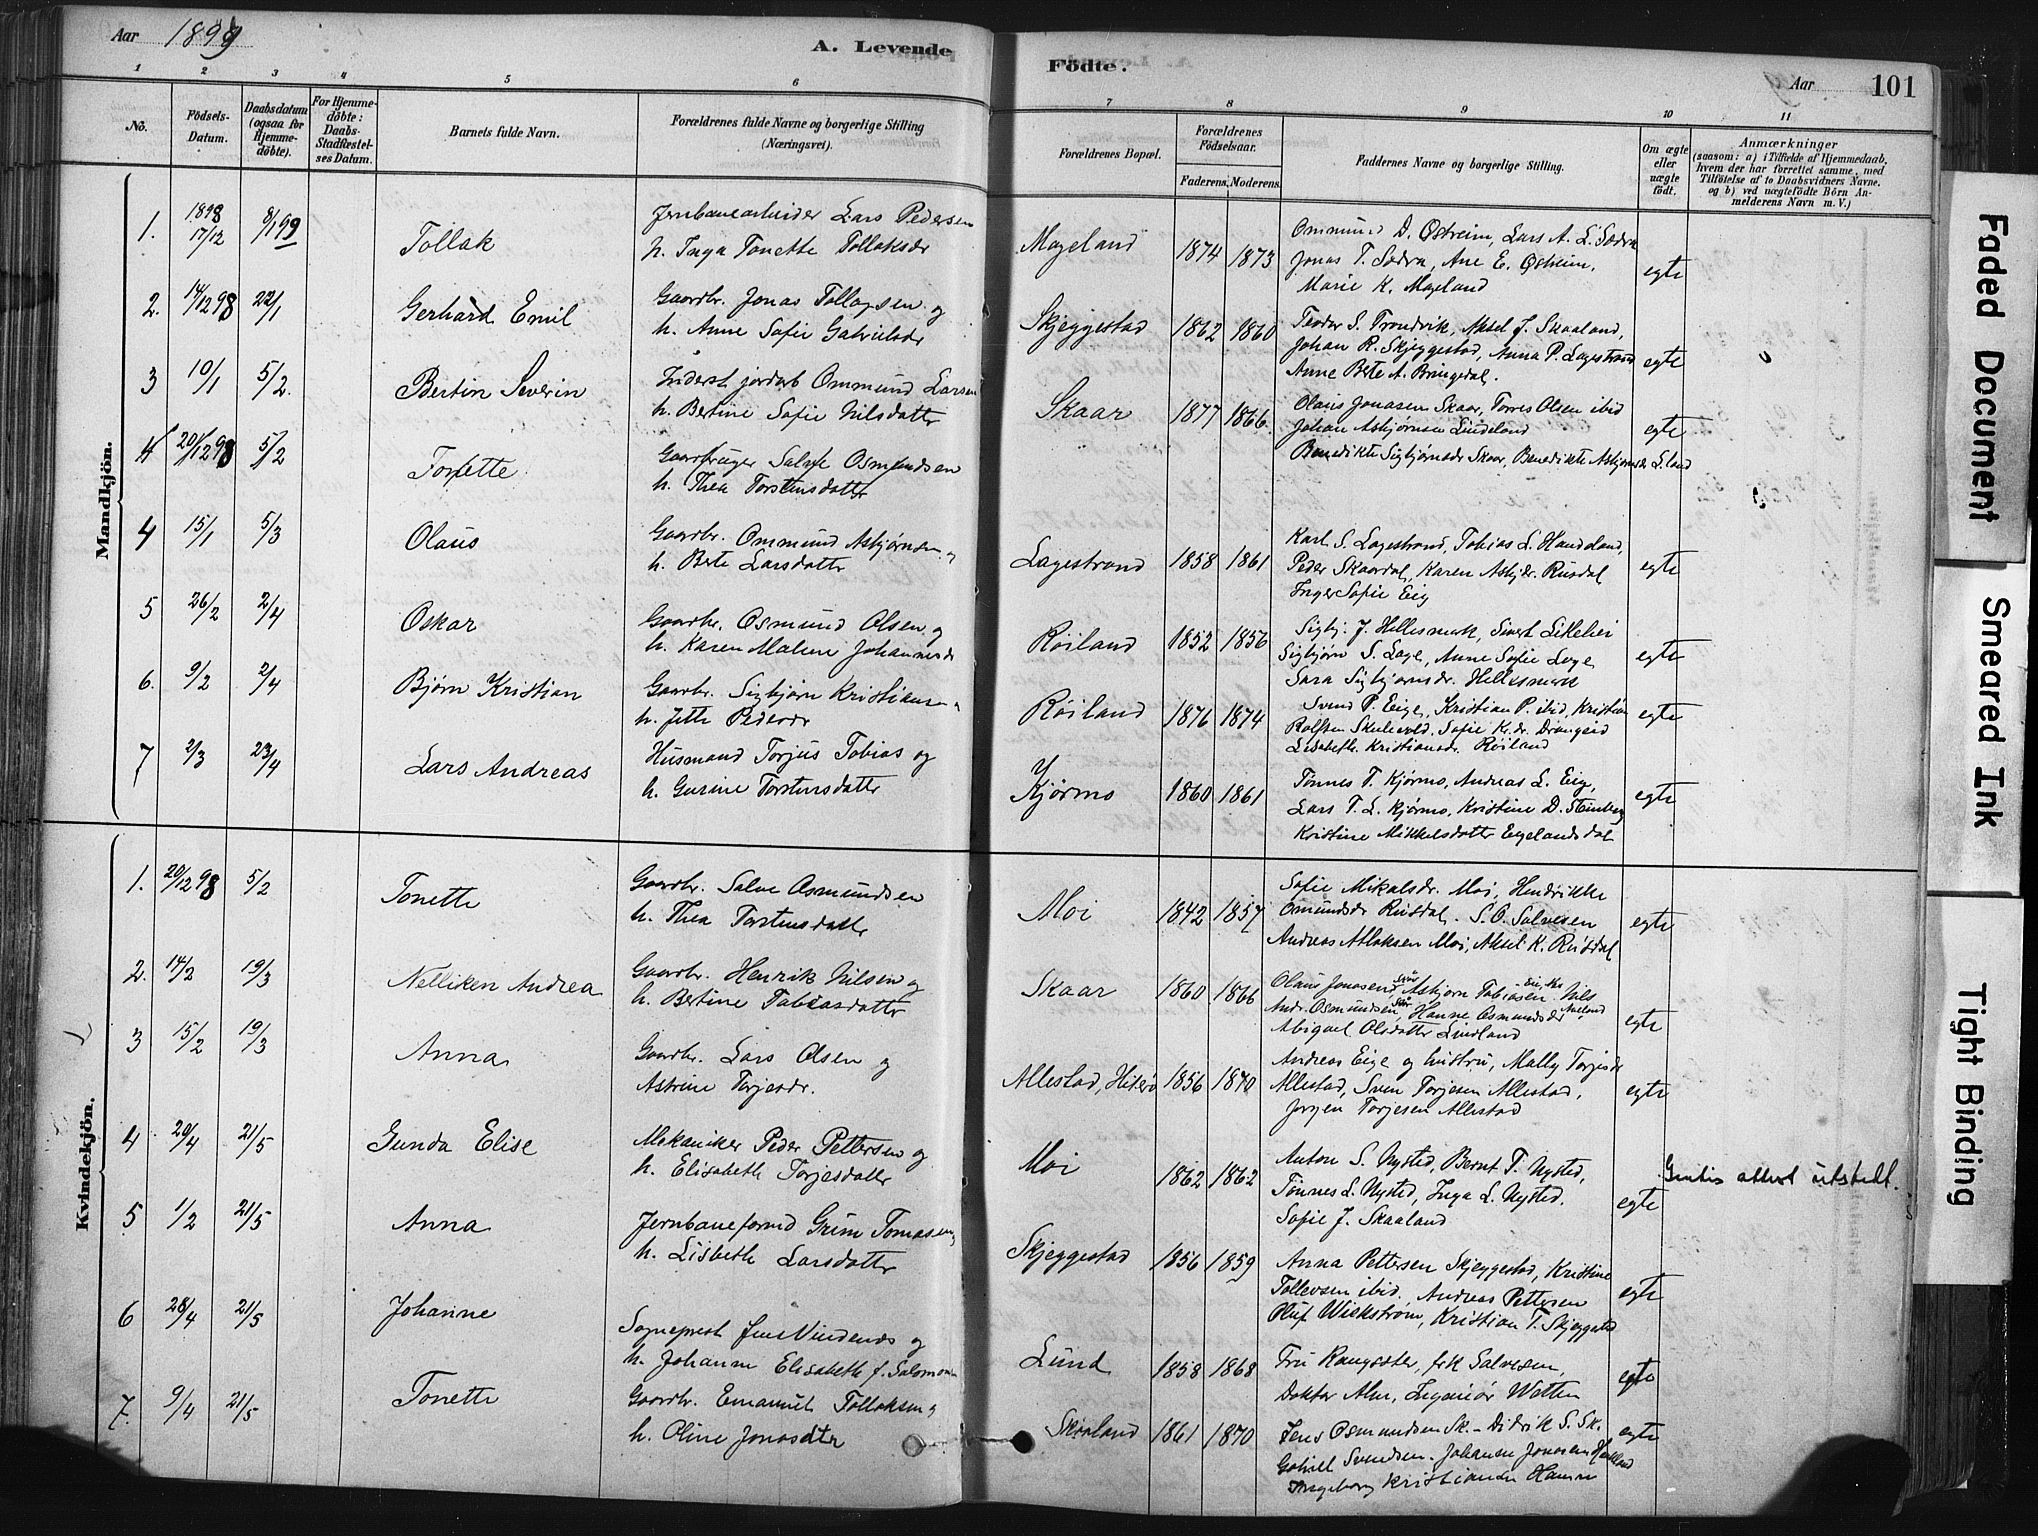 Aar 1899
A. Levende
Födte.
Aar
101
1 2 3 4 5 6 7 8 9 10 11
No.
Födsels-
Datum.
Daabsdatum
(ogsaa for
Hjemme-
döbte).
For Hjemme-
döbte:
Daabs-
Stadfæstel-
ses Datum.
Barnets fulde Navn.
Forældrenes fulde Navne og borgerlige Stilling
(Næringsvei).
Forældrenes Bopæl.
Forældrenes
Födselsaar.
Faderens. Moderens.
Faddernes Navne og borgerlige Stilling.
Om ægte
eller
uægte
født.
Anmærkninger
(saasom: a) i Tilfælde af Hjemmedaab,
hvem der har forrettet samme, med
Tilföielse af to Daabsvidners Navne,
og b) ved uægtefödte Börn An-
melderens Navn m. V.)
Mandkjön.
1. 1898 17/12 8/1 99 Tollak
Jernbanearbeider Lars Pedersen
h. Inga Tonette Tollaksdr
Mageland 1874 1873
Ommund D. Østreim, Lars A. L. Sødra
Jonas T. Sødra, Ane E. Østreim,
Marie K. Mageland
egte
2. 14/12 98 22/1 Gerhard Emil
Gaardbr. Jonas Tollagsen og
h. Anne Sofie Gabrielsdr
Skjeggestad 1862 1860
Teodor S. Trondvik, Aksel J. Skaaland,
Johan R. Skjeggestad, Anna P. Lagestrand
Anne Bete A. Bringedal.
egte
3 10/1 5/2. Bertin Severin
Inderst jordarb Ommund Larsen
h. Bertine Sofie Nilsdatter
Skaar 1877 1866.
Olaus Jonasen Skaar, Torres Olsen ibid
Johan Asbjørnsen Lindeland
Benedikte Sigbjørnsdr Skaar, Benedikte Asbjørnsdr L.land
egte
4 20/12 98 5/2 Tonette
Gaardbruger Salve Osmundsen
h. Thea Torstensdatter
4 15/1 5/3 Olaus
Gaardbr. Ommund Asbjørnsen og
h. Berte Larsdatter
Lagestrand 1858 1861
Karl S. Lagestrand, Tobias L. Haudeland,
Peder Skaardal, Karen Asbjdr. Rusdal
Inger Sofie Eig
egte
5 26/2 2/4 Oskar
Gaardbr. Osmund Olsen og
h. Karen Malene Johannesdr
Røiland 1852 1856
Sigbj. J. Hellesmark, Sivert Lillehei
Sigbjørn S. Lage, Anne Sofie Lage
Sara Sigbjørnsdr. Hellesmark
egte
6. 9/2 2/4 Bjørn Kristian
Gaardbr. Sigbjørn Kristiansen
h. Jette Pedersdr
Røiland 1876 1874
Svend P. Eige, Kristian P. ibid, Kristian
Rolfsen Skulevold, Sofie Kr.dr. Drangeid
Lisabeth Kristiansdr. Røiland
egte
7 2/3 23/4 Lars Andreas
Husmand Torjus Tobias og
h. Gurine Torstensdatter
Kjørmo 1860 1861
Tønnes T. Kjørmo, Andreas L. Eig,
Lars T. L. Kjørmo, Kristine D. Steinberg
Kristine Mikkelsdatter Eigelandsdal
egte
Kvindekjön.
1. 20/12 98 5/2 Tonette
Gaardbr. Salve Osmundsen
h. Thea Torstensdatter
Moi 1842 1857
Sofie Mikalsdr. Moi, Hendrikke
Omundsdr Rusdal. S. O. Salvesen
Andreas Atlaksen Moi, Aksel K. Rusdal
egte
2. 14/2 19/3 Nelliken Andrea
Gaardbr. Henrik Nilsen og
h. Bertine Tobiasdatter
Skaar 1860 1866
Olaus Jonasen Asbjørn Tobiasen Nils
Andr. Osmundsen, Hanne Osmundsdr
Abigael Olsdatter Lindland
egte
3 15/2 19/3 Anna
Gaardbr. Lars Olsen og
Astrine Torjesdr.
Allestad, Hiterø 1856 1870
Andreas Eige og hustru, Mally Torjesdr
Allestad, Sven Torjesen Allestad,
Jørgen Torjesen Allestad
egte
4 20/4 21/5 Gunda Elise
Mekaniker Peder Pettersen og
h. Elisabeth Torjesdatter
Moi 1862 1862
Anton S. Nysted, Bernt T. Nysted,
Tønnes L. Nysted, Inga L. Nysted.
Sofie J. Skaaland
egte
Gratis attest utstedt.
5 1/2 21/5 Anna
Jernbaneformd Grim Tomasen
h. Lisbeth Larsdatter
Skjeggestad 1856 1859
Anna Pettersen Skjeggestad, Kristine
Tollevsen ibid. Andreas Pettersen
Oluf Wiekstrøm, Kristian T. Skjeggestad
egte
6 28/4 21/5 Johanne
Sogneprest Jens Vindenes og
h. Johanne Elisabeth f. Salomon
Lund 1858 1868
Fru Kongsster, frk Salvesen,
Doktor Alm, Ingeniør Watten
egte
7. 9/4 21/5 Tonette
Gaardbr. Emanuel Tollaksen og
h. Oline Jonasdtr
Skaaland 1861 1870
Jens Osmundsen Sk. – Didrik S. Sk.
Gabriel Svendsen. Johanne Jonasen
Ingeborg Kristiansdr Hamre
egte
Faded Document
Smeared Ink
Tight Binding